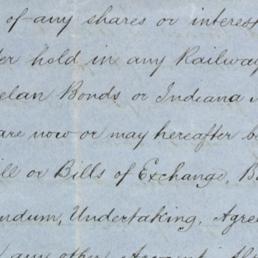 of any shares or interest
hold in any Railway
Bonds or Indiana
are now or may hereafter be
or Bills of Exchange, B
Undertaking, Agre
any other